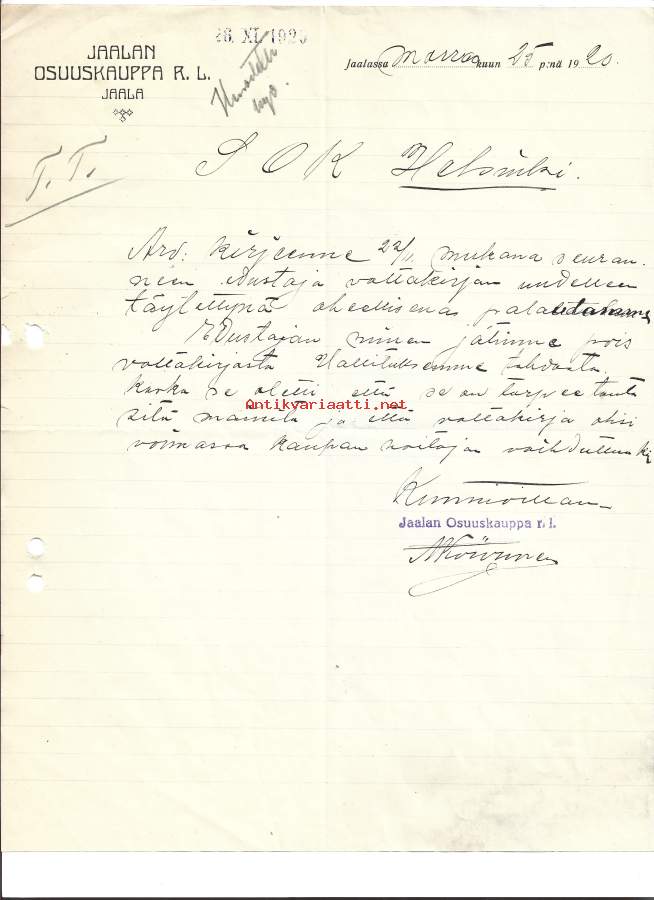 26. XI. 1920
JAALAN
OSUUSKAUPPA R. L.
JAALA
Jaalassa marraskuun 25 p:nä 1920.
T. T.
S O K Helsinki.
Arv: kirjeenne 22/11 mukana seuran-
neen edustaja valtakirjan uudelleen
täytettynä oheellisena palautamme
Edustajan nimen jätimme pois
valtakirjasta Hallituksemme tahdosta
koska se oletti että se on tarpeetonta
sitä mainita ja että valtakirja olisi
voimassa kaupan hoitajan vaihduttua ki
Kunnioittaen
Jaalan Osuuskauppa r. l.
Antikvariaatti.net